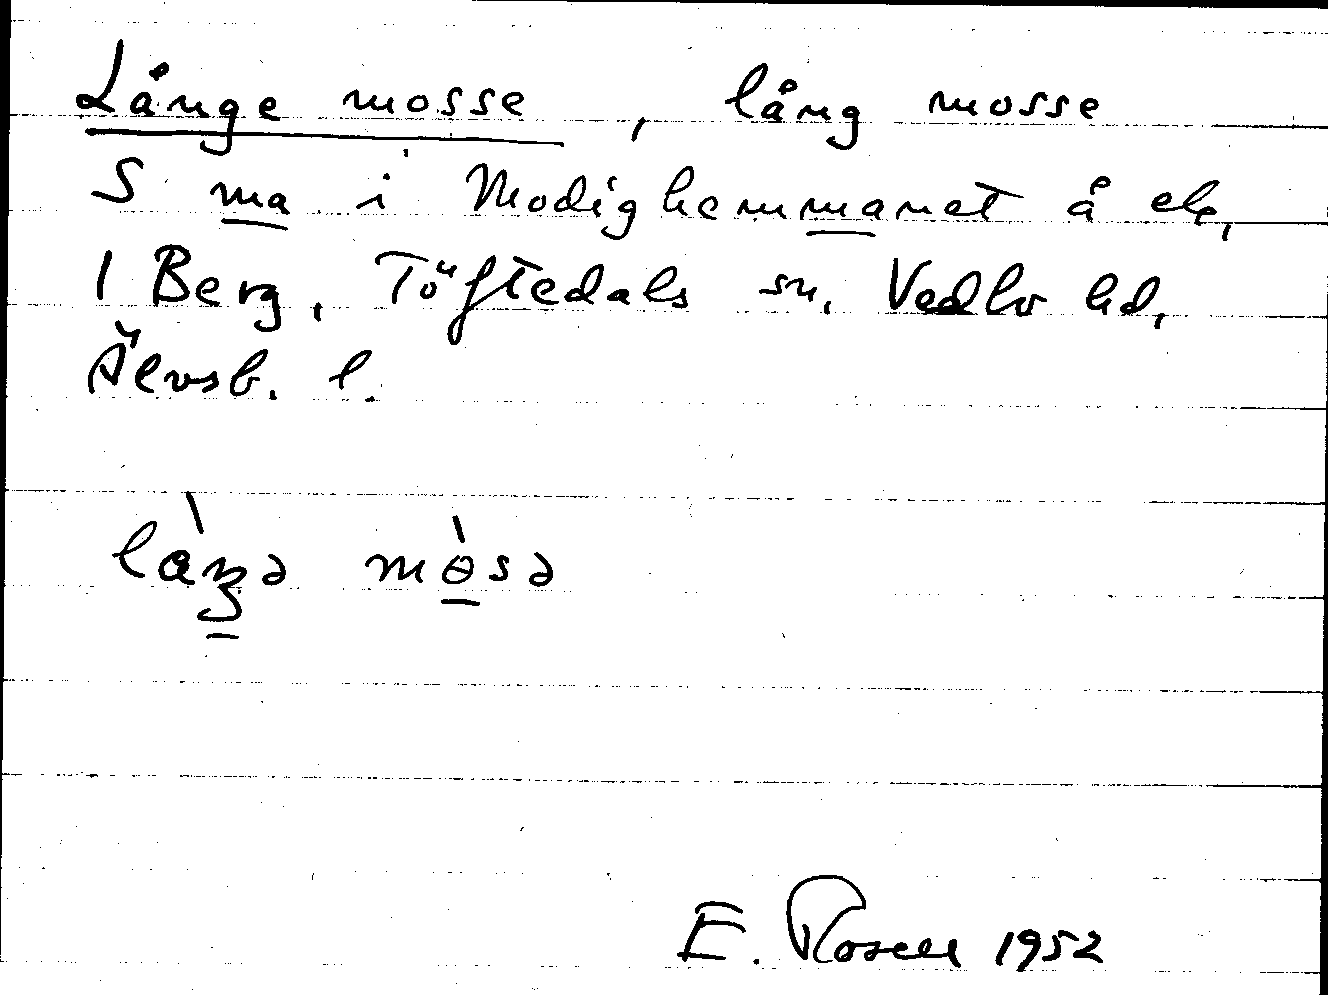 Långe mosse, lång mosse
S ma i Modighemmanet å ek.
1 Berg, Töftedals sn, Vedbo hd,
Älvsb. l.
mɵ̀sə
E. Rosell 1952